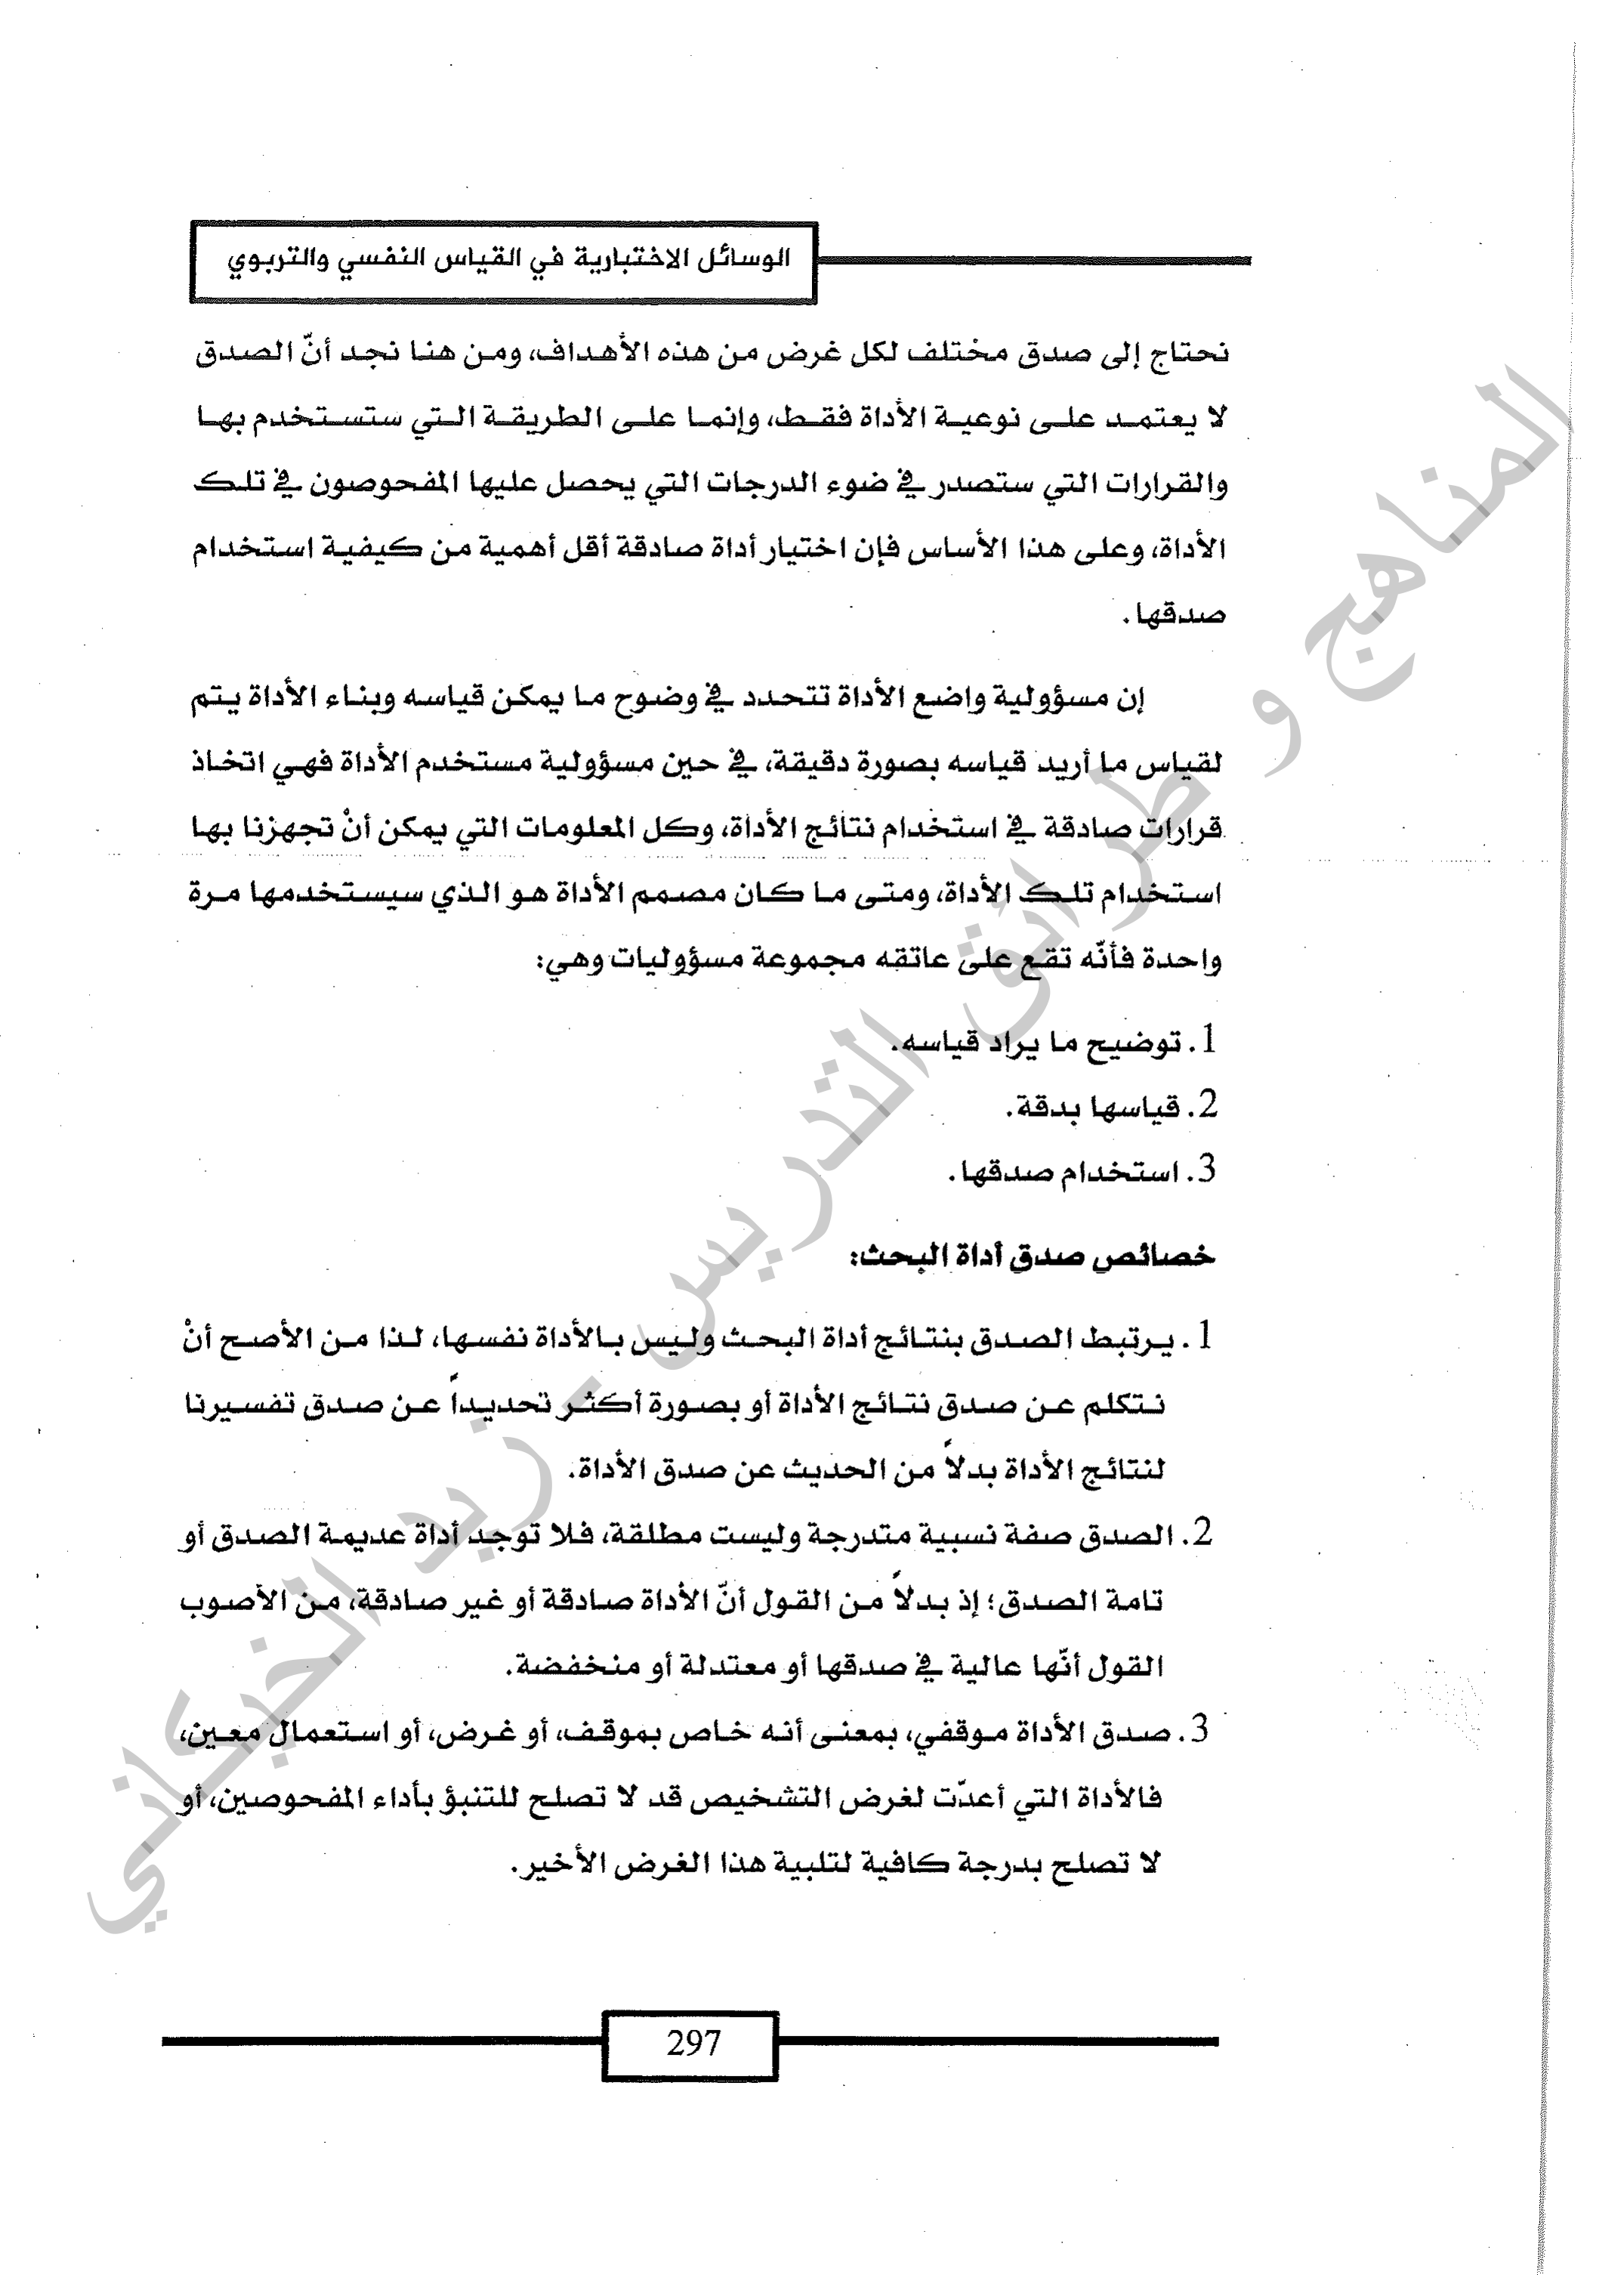 الوسائل الاختبارية في القياس النفسي والتربوي
نحتاج إلى صدق مختلف لكل غرض من هذه الأهداف، ومن هنا نجد أنّ الصدق
لا يعتمد على نوعية الأداة فقط، وإنما على الطريقة التي ستستخدم بها
والقرارات التي ستصدر في ضوء الدرجات التي يحصل عليها المفحوصون في تلك
الأداة، وعلى هذا الأساس فإن اختيار أداة صادقة أقل أهمية من كيفية استخدام
صدقها.
إن مسؤولية واضع الأداة تتحدد في وضوح ما يمكن قياسه وبناء الأداة يتم
لقياس ما أريد قياسه بصورة دقيقة، في حين مسؤولية مستخدم الأداة فهي اتخاذ
قرارات صادقة في استخدام نتائج الأداة، وكل المعلومات التي يمكن أنْ تجهزنا بها
استخدام تلك الأداة، ومتى ما كان مصمم الأداة هو الذي سيستخدمها مرة
واحدة فأنّه تقع على عاتقه مجموعة مسؤوليات وهي:
1. توضيح ما يراد قياسه.
2. قياسها بدقة.
3. استخدام صدقها.
خصائص صدق أداة البحث:
1. يرتبط الصدق بنتائج أداة البحث وليس بالأداة نفسها، لذا من الأصح أنْ
نتكلم عن صدق نتائج الأداة أو بصورة أكثر تحديداً عن صدق تفسيرنا
لنتائج الأداة بدلاً من الحديث عن صدق الأداة.
2. الصدق صفة نسبية متدرجة وليست مطلقة، فلا توجد أداة عديمة الصدق أو
تامة الصدق؛ إذ بدلاً من القول أنّ الأداة صادقة أو غير صادقة، من الأصوب
القول أنّها عالية في صدقها أو معتدلة أو منخفضة.
3. صدق الأداة موقفي، بمعنى أنه خاص بموقف، أو غرض، أو استعمال معين،
فالأداة التي أعدّت لغرض التشخيص قد لا تصلح للتنبؤ بأداء المفحوصين، أو
لا تصلح بدرجة كافية لتلبية هذا الغرض الأخير.
297
المناهج و طرائق التدريس - زيد الخيكاني